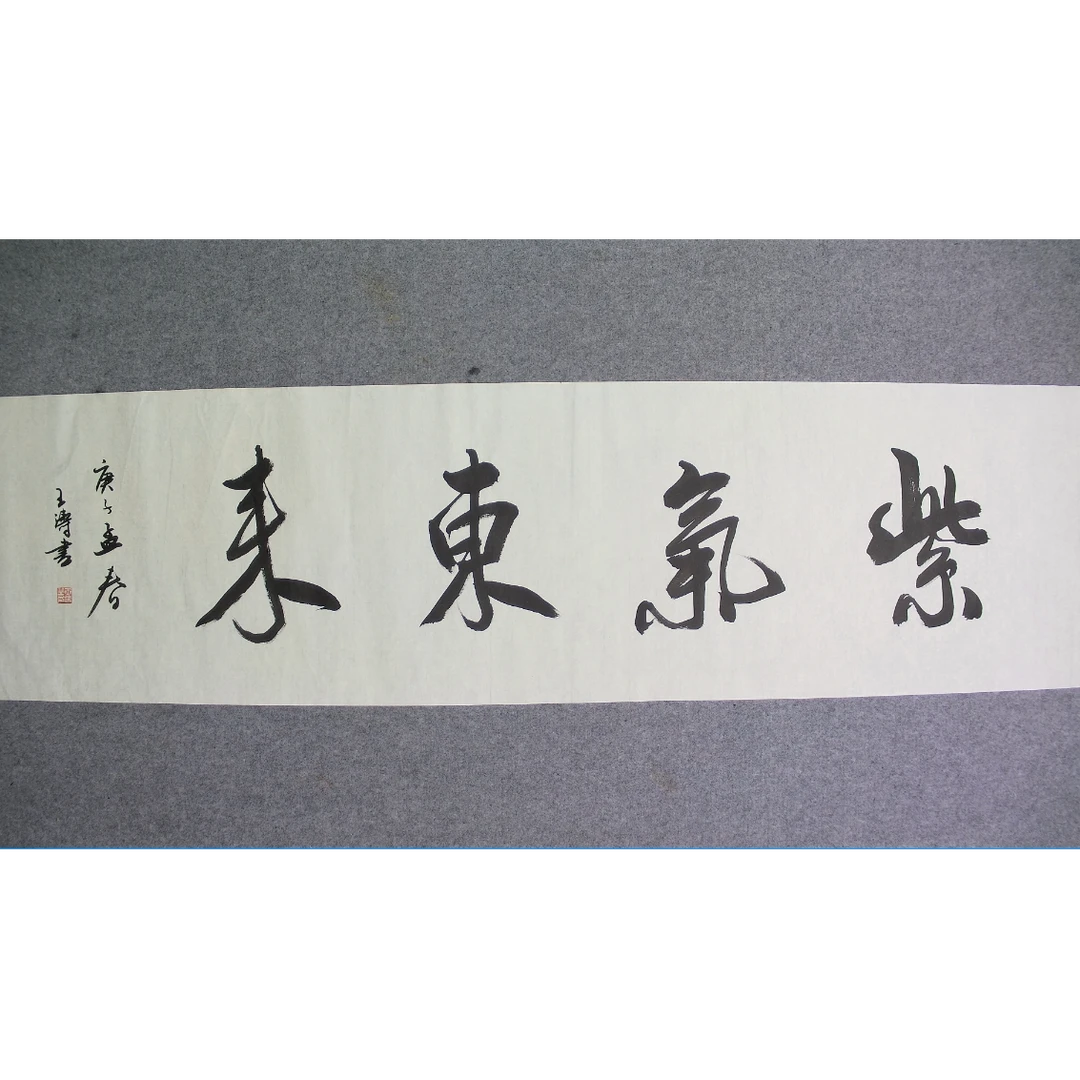 紫氣東来
庚子孟春
王濤書